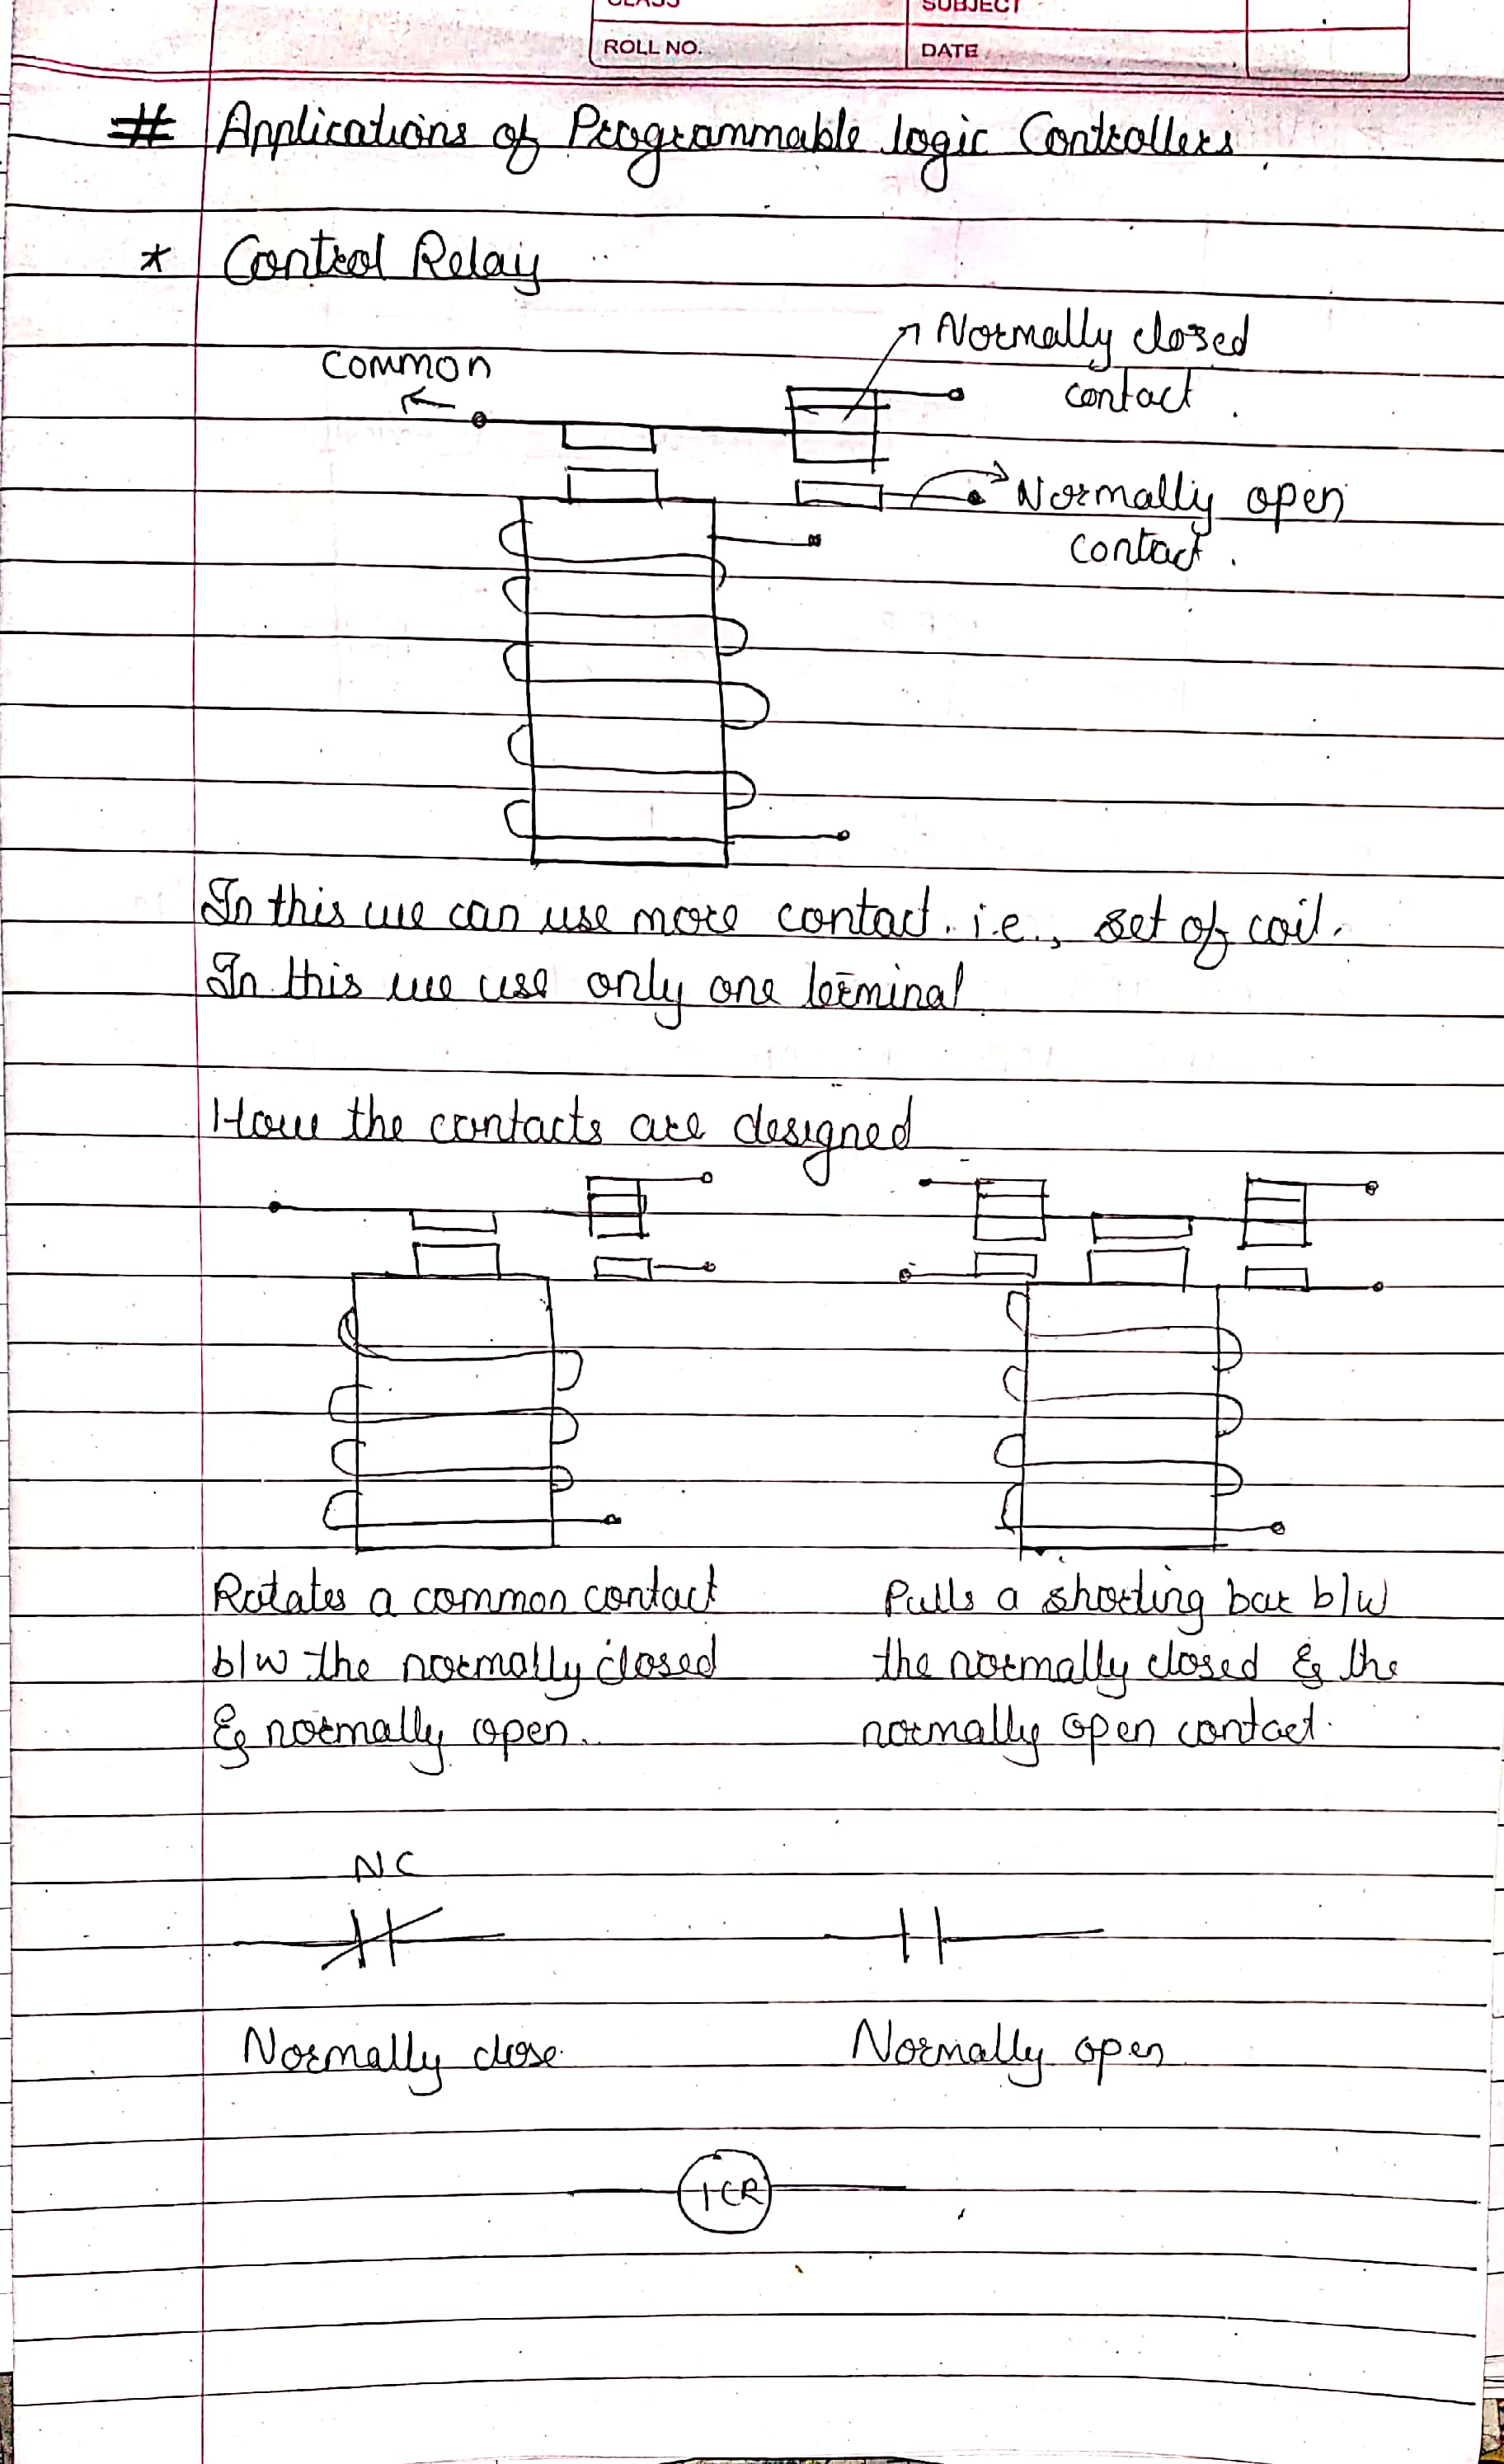 CLASS
SUBJECT
ROLL NO.
DATE
# Applications of Programmable logic Controllers
* Control Relay
Normally closed
contact.
Common
Normally open
contact.
In this we can use more contact. i.e., set of coil.
In this we use only one terminal
How the contacts are designed
Rotates a common contact
b/w the normally closed
& normally open.
Pulls a shorting bar b/w
the normally closed & the
normally open contact.
NC
Normally close.
Normally open
1CR